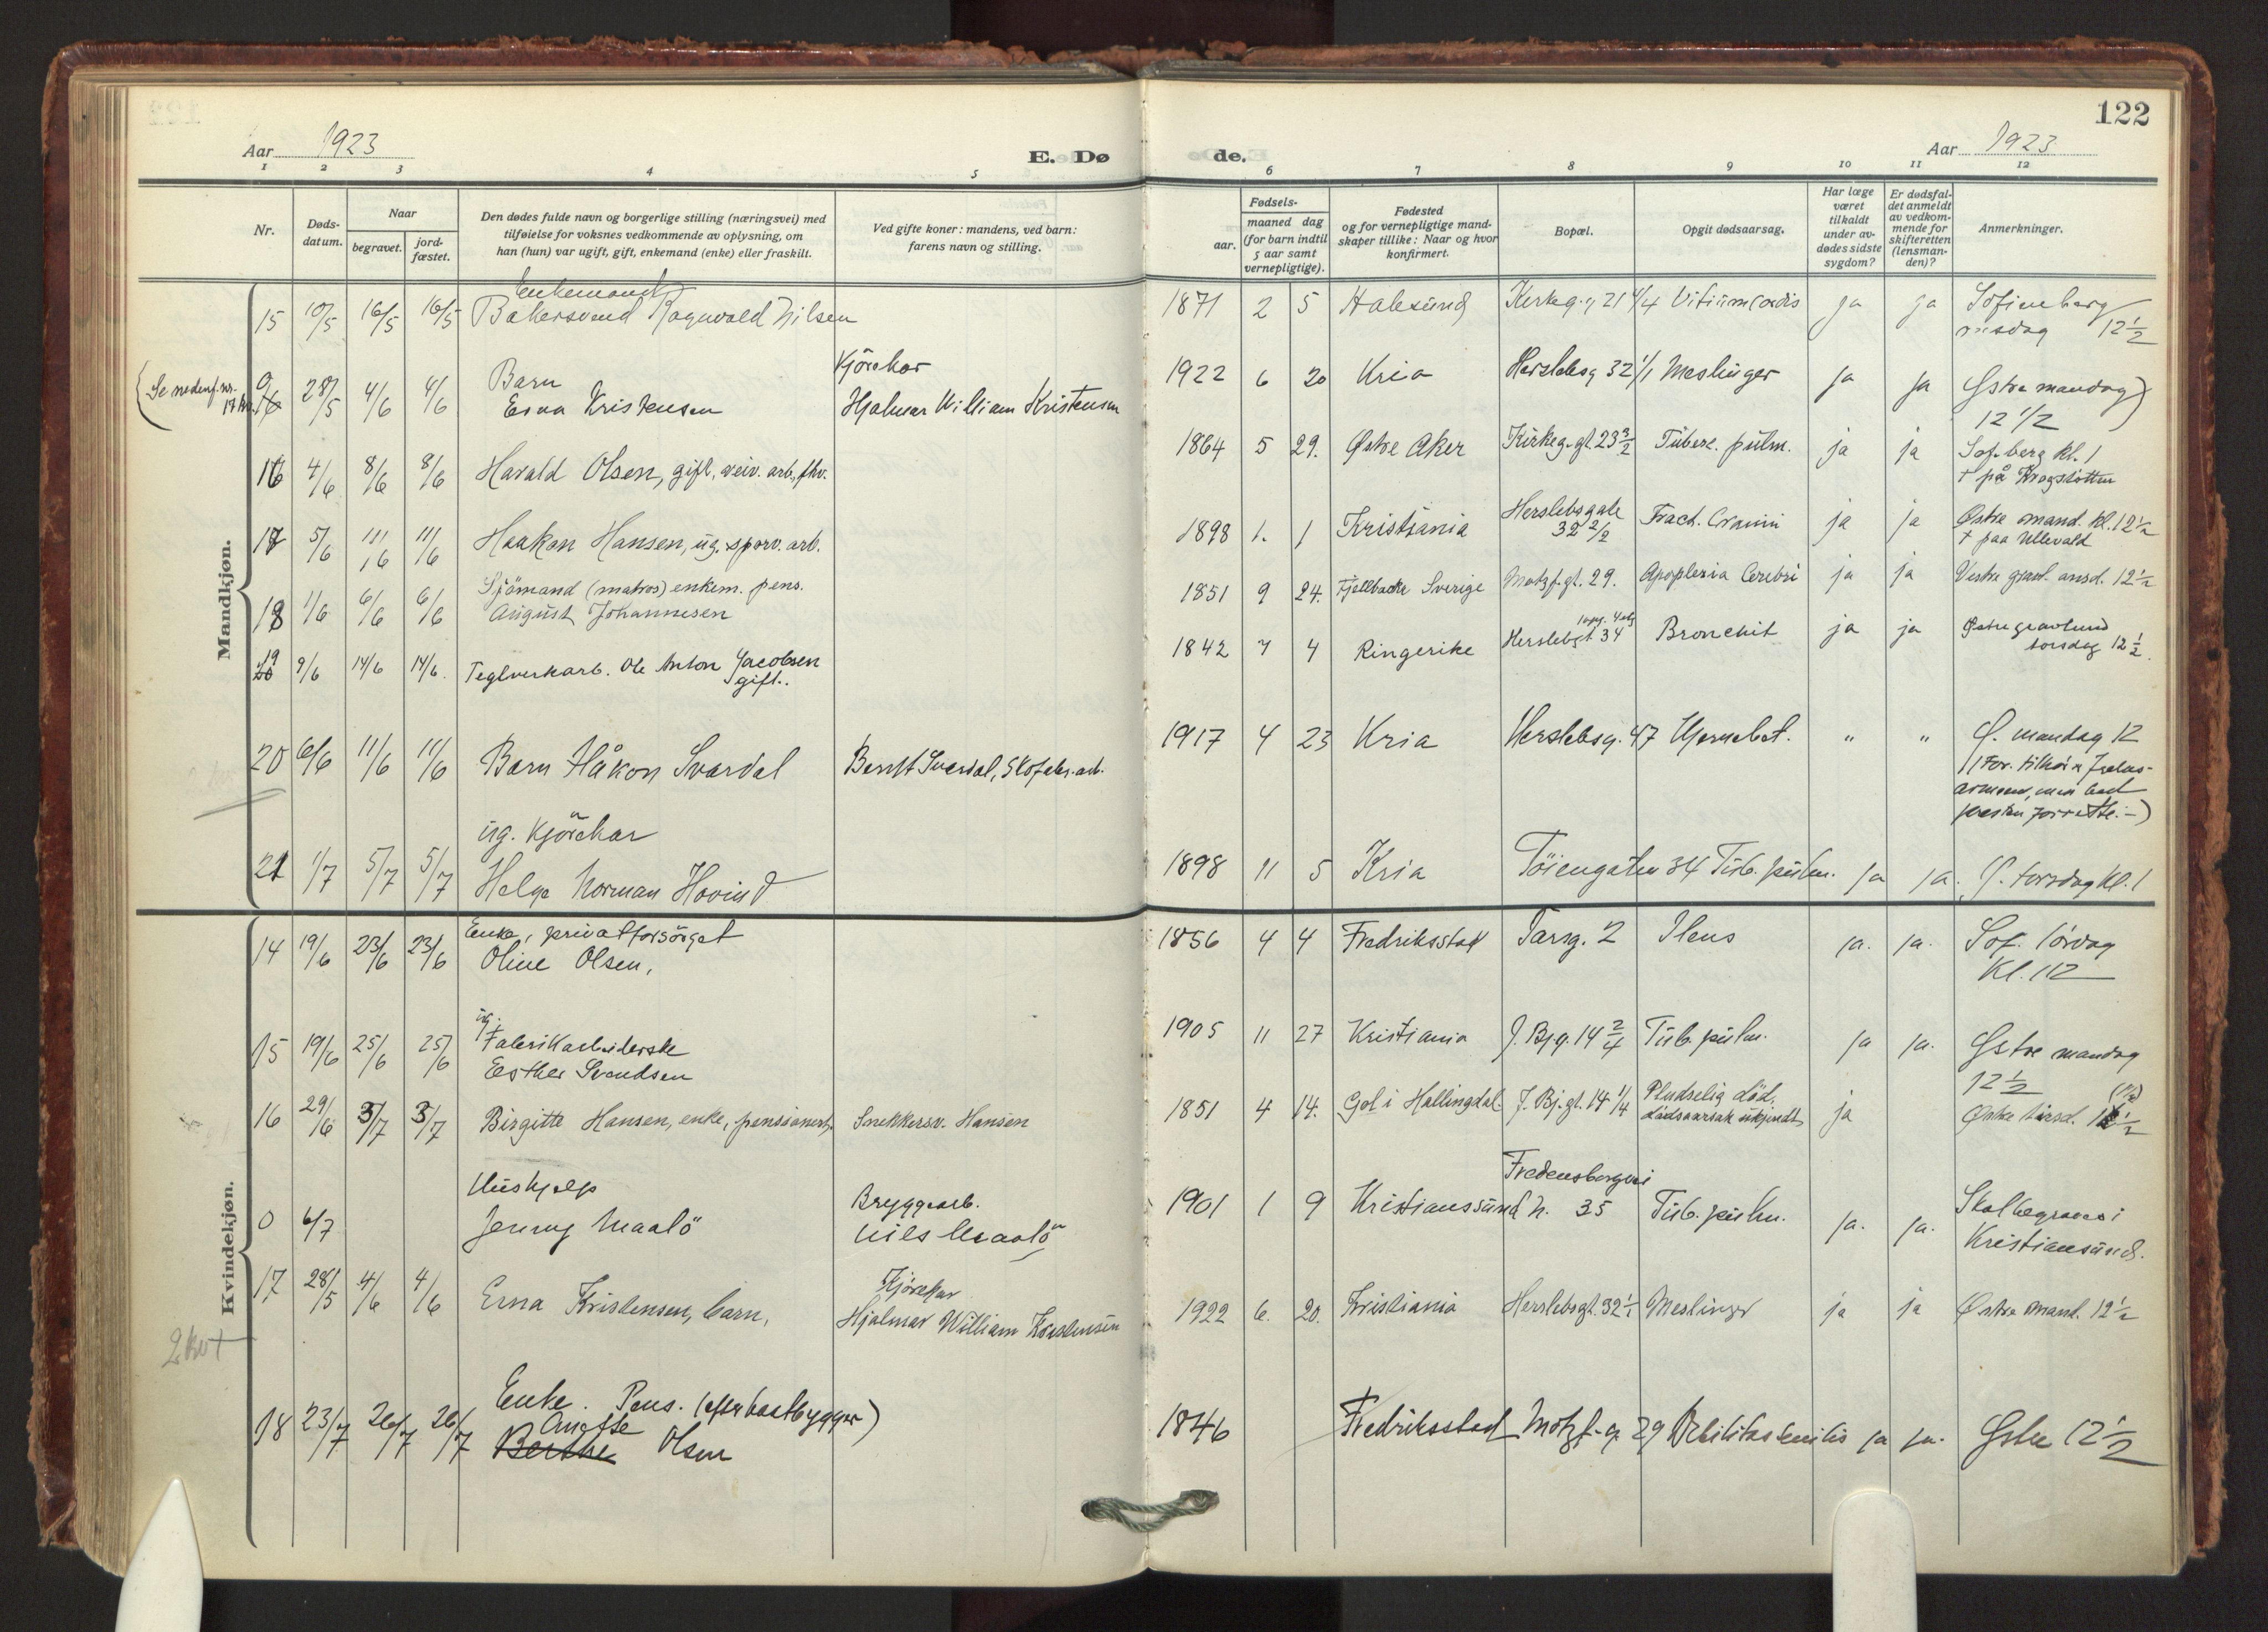 122
Aar 1923
E. Dø
de.
Aar 1923
1 2 3 4 5 6 7 8 9 10 11 12
Nr.
Døds-
datum.
Naar
begravet.
jord-
fæstet.
Den dødes fulde navn og borgerlige stilling (næringsvei) med
tilføielse for voksnes vedkommende av oplysning, om
han (hun) var ugift, gift, enkemand (enke) eller fraskilt.
Ved gifte koner: mandens, ved barn:
farens navn og stilling.
Fødsels-
aar.
maaned dag
(for barn indtil
5 aar samt
vernepligtige).
Fødested
og for vernepligtige mand-
skaper tillike: Naar og hvor
konfirmert.
Bopæl.
Opgit dødsaarsag.
Har læge
været
tilkaldt
under av-
dødes sidste
sygdom?
Er dødsfal-
det anmeldt
av vedkom-
mende for
skifteretten
(lensman-
den)?
Anmerkninger.
Mandkjøn.
Enkemand
15 10/5 16/5 16/5 Bakersvend Ragnvald Nilsen 1871 2 5 Kirkeg. 21 4/4 Vitium Cordis ja ja Sofienberg
onsdag 12 1/2
(Se nedenf. nr.
17 kv.
0 28/5 4/6 4/6 Barn
Erna Kristensen
Kjörekar
Hjalmar William Kristensen
1922 6 20 Kria Herslebsg 32 1/1 Meslinger ja ja Østre mandag)
12 1/2
16 4/6 8/6 8/6 Harald Olsen, gift, veiv. arb., fhv. 1864 5 29. Østre Aker Kirkeg.gt. 23 3/2 Tuberc. pulm. ja ja Sof.berg kl. 1
† på Krogstötten
17 5/6 11/6 11/6 Haakon Hansen, ug. sporv. arb. 1898 1. 1 Kristiania Herslebsgate
32 2/2
Fract. Cranii ja ja Østre mand. kl. 12 1/2
† paa Ullevaal
18 1/6 6/6 6/6 Sjömand (matros) enkem. pens.
August Johannesen
1851 9 24. Fjellbacka Sverige Motzf.gt. 29. Apoplexia Cerebri ja ja Vestre gravl. onsd. 12 1/2
19 9/6 14/6 14/6. Teglverkarb. Ole Anton Jacobsen
gift..
1842 7 4 Ringerike Herslebgt 34 Bronchit ja ja Østre gravlund
torsdag 12 1/2.
20 6/6 11/6 11/6 Barn Håkon Svardal Berndt Svardal, Skofabr.arb. 1917 4 23 Kria Herslebsg. 47 Hjernebet. " " Ø. mandag 12
(For. tilhörer Frelses-
armeen, men bad
presten forrette.-)
21 1/7 5/7 5/7 ug. Kjörekar
Helge Norman Hovind
1898 11 5 Kria Töiengaten 34 Tub. pulm. ja ja. Ø. torsdag kl. 1
Kvindekjøn.
14 19/6 23/6 23/6 Enke, privat forsörget
Oline Olsen,
1856 4 4 Fredriksstad Tarsg. 2 Ileus ja. ja. Sof. lördag
Kl. 112
15 19/6 25/6 25/6 ug.
Fabrikarbeiderske
Esther Svendsen
1905 11 27 Kristiania J. Bjg. 14 2/4 Tub. pulm. ja ja. Østre mandag
12 1/2
16 29/6 3/7 3/7 Birgitte Hansen, enke, pensionert, Snekkersv. Hansen 1851 4 14. Gol i Hallingdal. J. Bj.gt. 14 1/4 Pludselig död,
dödsaarsak ukjendt ja Østre tirsd.
0 6/7 Hushjelp
Jenny Maalö
Bryggearb.
Nils Maalö
1901 1 9 Kristianssund N. Fredensborgvei
35
Tub. pulm. ja. ja. Skal begraves i
Kristiansund.
17 28/5 4/6 4/6 Erna Kristensen, barn, Kjörekar
Hjalmar William Kristensen
1922 6. 20. Kristiania Herslebsgt. 32 1/1 Meslinger ja ja Østre mand. 12 1/2
2 kv †
18 23/7 26/7 26/7 Enke. Pens. (efter baatbygger)
Anette
Berthe Olsen
1846 Fredriksstad Motzf.g. 29 Debilitas senilis ja ja. Østre 12 1/2